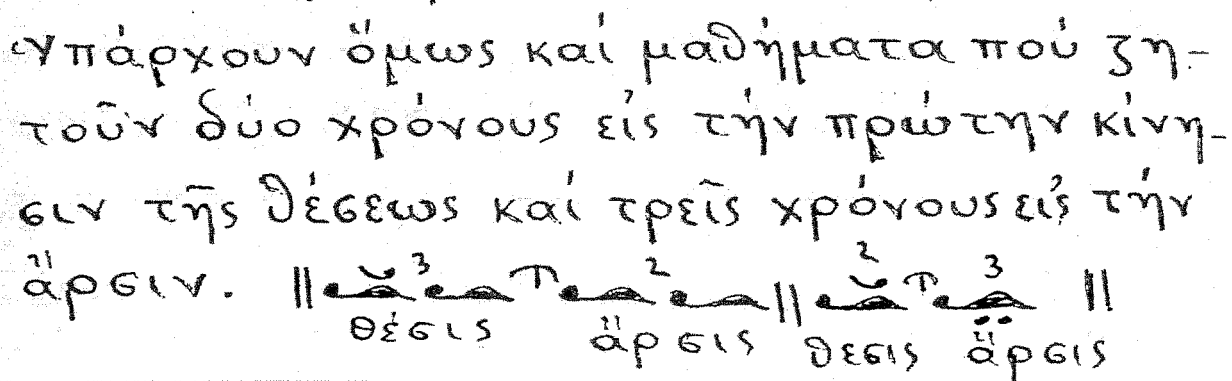 Ὑπάρχουν ὅμως καί μαθήματα πού ζη-
τοῦν δύο χρόνους εἰς τήν πρώτην κίνη-
σιν τῆς θέσεως καί τρεῖς χρόνους εἰς τήν
ἄρσιν. 3 2 2 3
θέσις ἄρσις θεσις ἄρσις